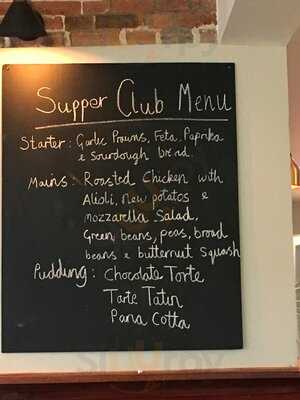 Supper Club Menu
Starter: Garlic Prawns, Feta, Paprika
& Sourdough bread.
Mains: Roasted Chicken with
Alioli, New potatos &
mozzarella Salad,
Green beans, peas, broad
beans & butternut squash
Pudding: Chocolate Torte
Tarte Tatin
Pana Cotta